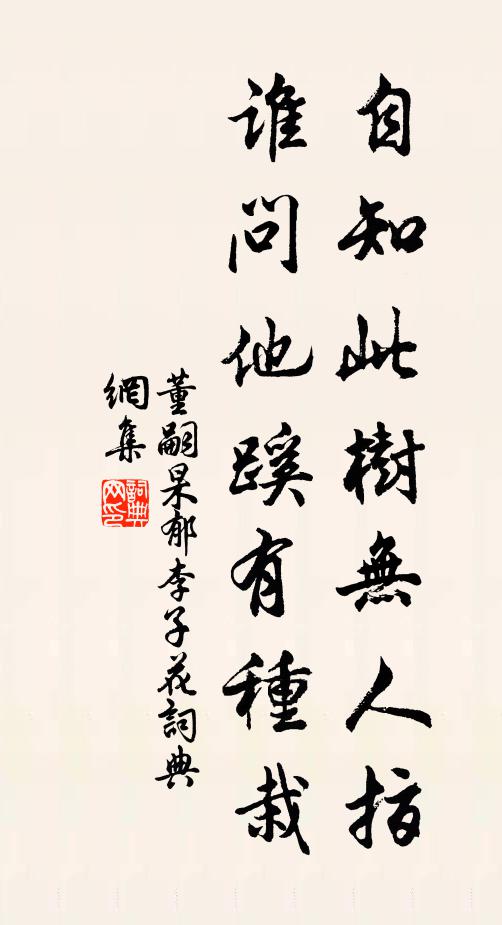 自知此樹無人指
誰問他蹊有種栽
董嗣杲郁李子花詞典
網集
詞典網印